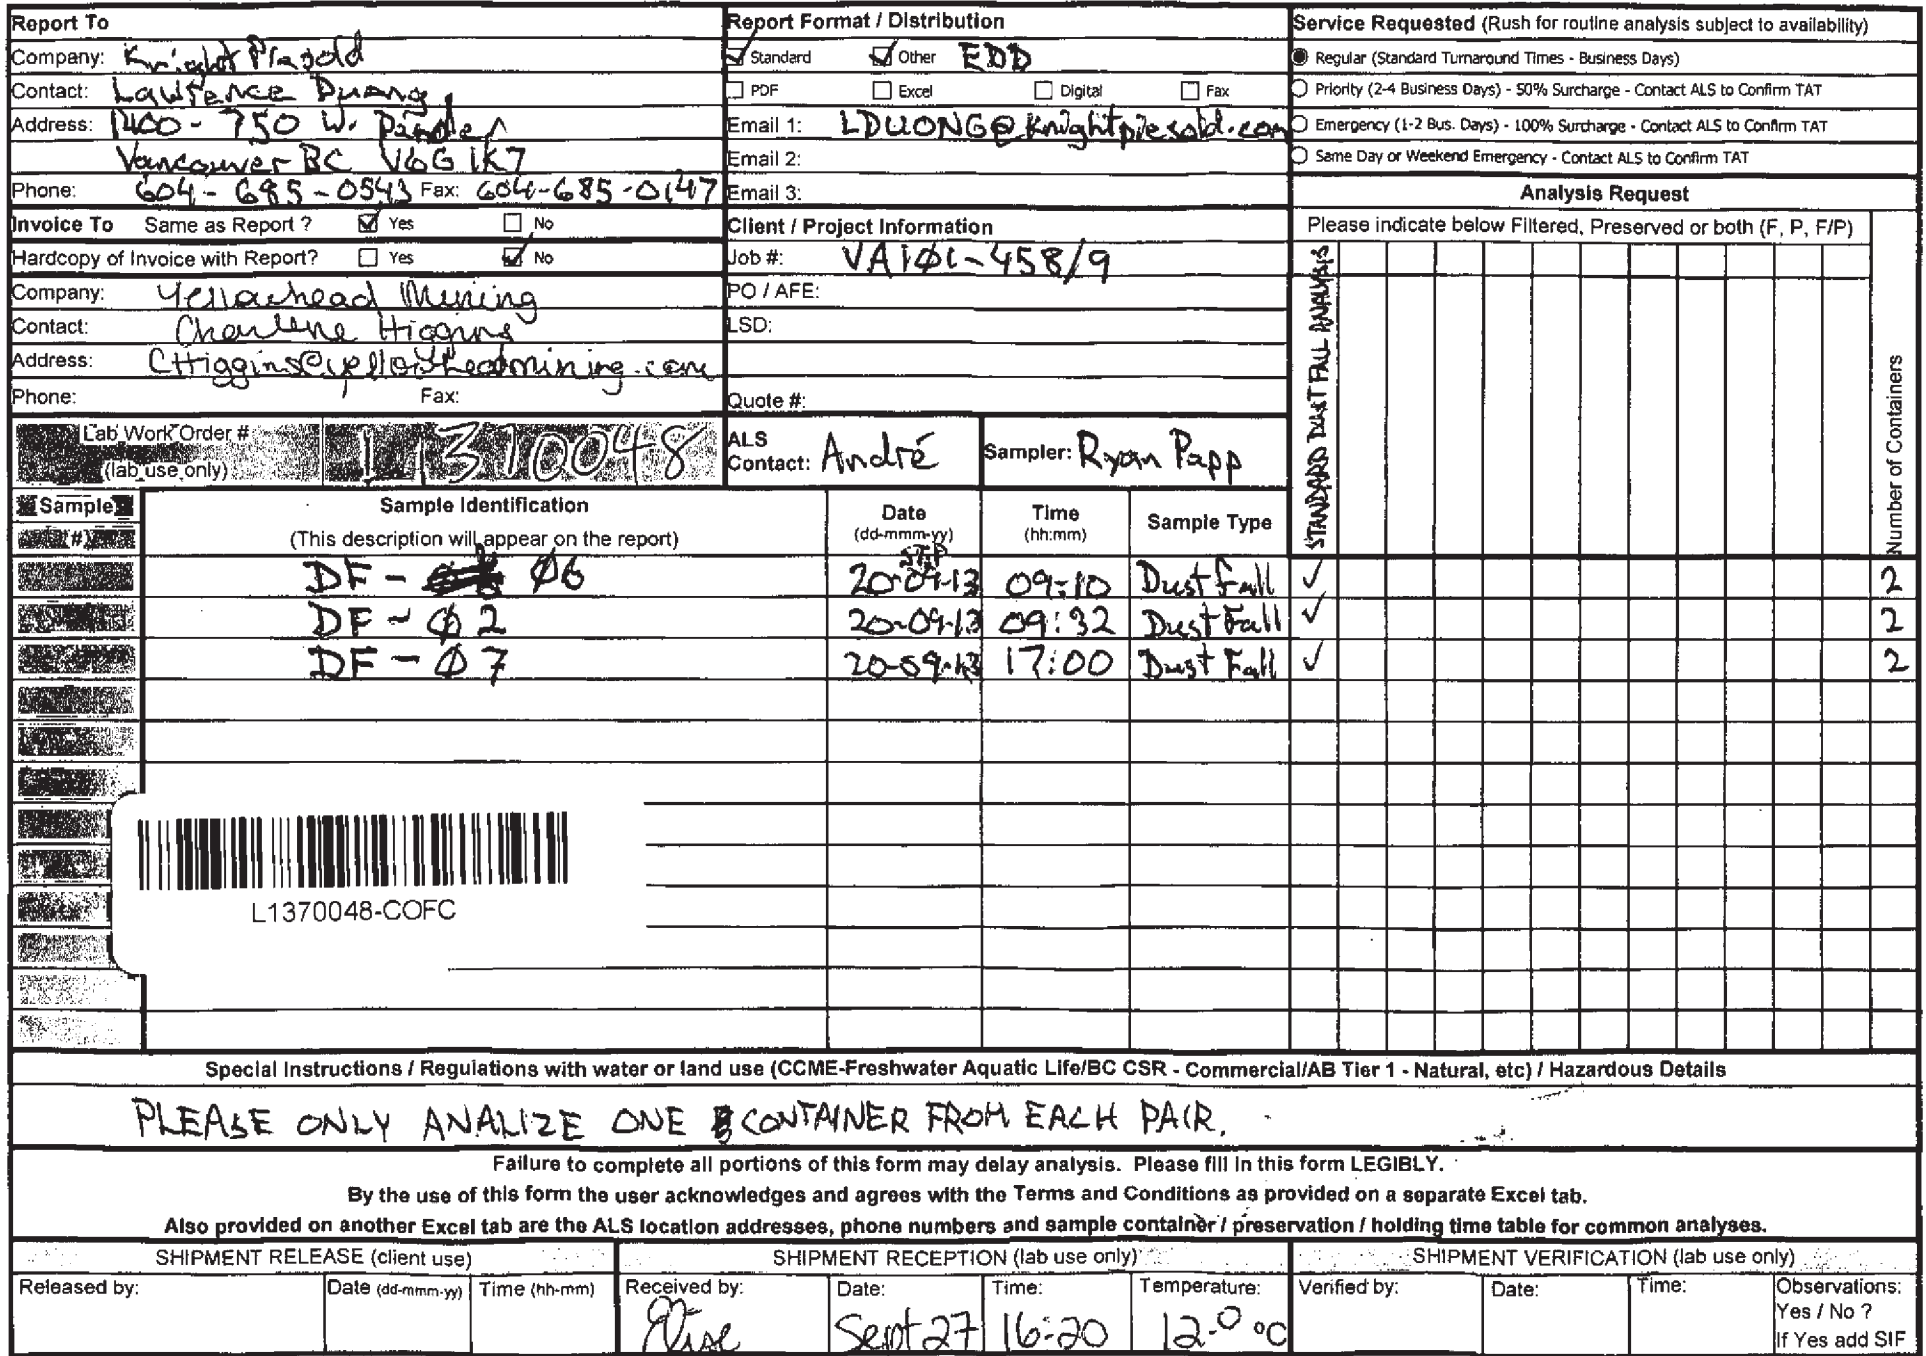 Report To
Company: Knight Piesold
Contact: Lawrence Duong
Address: 1400-750 W. Pender
Vancouver BC V6G 1K7
Phone: 604-685-0543 Fax: 604-685-0147
Invoice To Same as Report ? Yes No
Hardcopy of Invoice with Report? Yes No
Company: Yellowhead Mining
Contact: Charlene Higgins
Address: CHiggins@yellowheadmining.com
Phone: Fax:
Lab Work Order #
(lab use only)
Report Format / Distribution
Standard Other EDD
PDF Excel Digital Fax
Email 1: LDUONG@knightpiesold.com
Email 2:
Email 3:
Client / Project Information
Job #: VA101-458/9
PO / AFE:
LSD:
Quote #:
ALS
Contact: André
Sampler: Ryan Papp
Service Requested (Rush for routine analysis subject to availability)
Regular (Standard Turnaround Times - Business Days)
Priority (2-4 Business Days) - 50% Surcharge - Contact ALS to Confirm TAT
Emergency (1-2 Bus. Days) - 100% Surcharge - Contact ALS to Confirm TAT
Same Day or Weekend Emergency - Contact ALS to Confirm TAT
Analysis Request
Please indicate below Filtered, Preserved or both (F, P, F/P)
STANDARD DUST FALL ANALYSIS
Number of Containers
Sample
#
Sample Identification
(This description will appear on the report)
Date
(dd-mmm-yy)
Time
(hh:mm)
Sample Type
DF - Ø6 20-09-13 SEP 09:10 Dust Fall ✓ 2
DF - Ø2 20-09-13 09:32 Dust Fall ✓ 2
DF - Ø7 20-09-13 17:00 Dust Fall ✓ 2
L1370048-COFC
Special Instructions / Regulations with water or land use (CCME-Freshwater Aquatic Life/BC CSR - Commercial/AB Tier 1 - Natural, etc) / Hazardous Details
PLEASE ONLY ANALIZE ONE CONTAINER FROM EACH PAIR.
Failure to complete all portions of this form may delay analysis. Please fill in this form LEGIBLY.
By the use of this form the user acknowledges and agrees with the Terms and Conditions as provided on a separate Excel tab.
Also provided on another Excel tab are the ALS location addresses, phone numbers and sample container / preservation / holding time table for common analyses.
SHIPMENT RELEASE (client use)
Released by: Date (dd-mmm-yy) Time (hh-mm)
SHIPMENT RECEPTION (lab use only)
Received by: Date: Time: Temperature:
Sept 27 16:20 12.0 °C
SHIPMENT VERIFICATION (lab use only)
Verified by: Date: Time: Observations:
Yes / No ?
If Yes add SIF